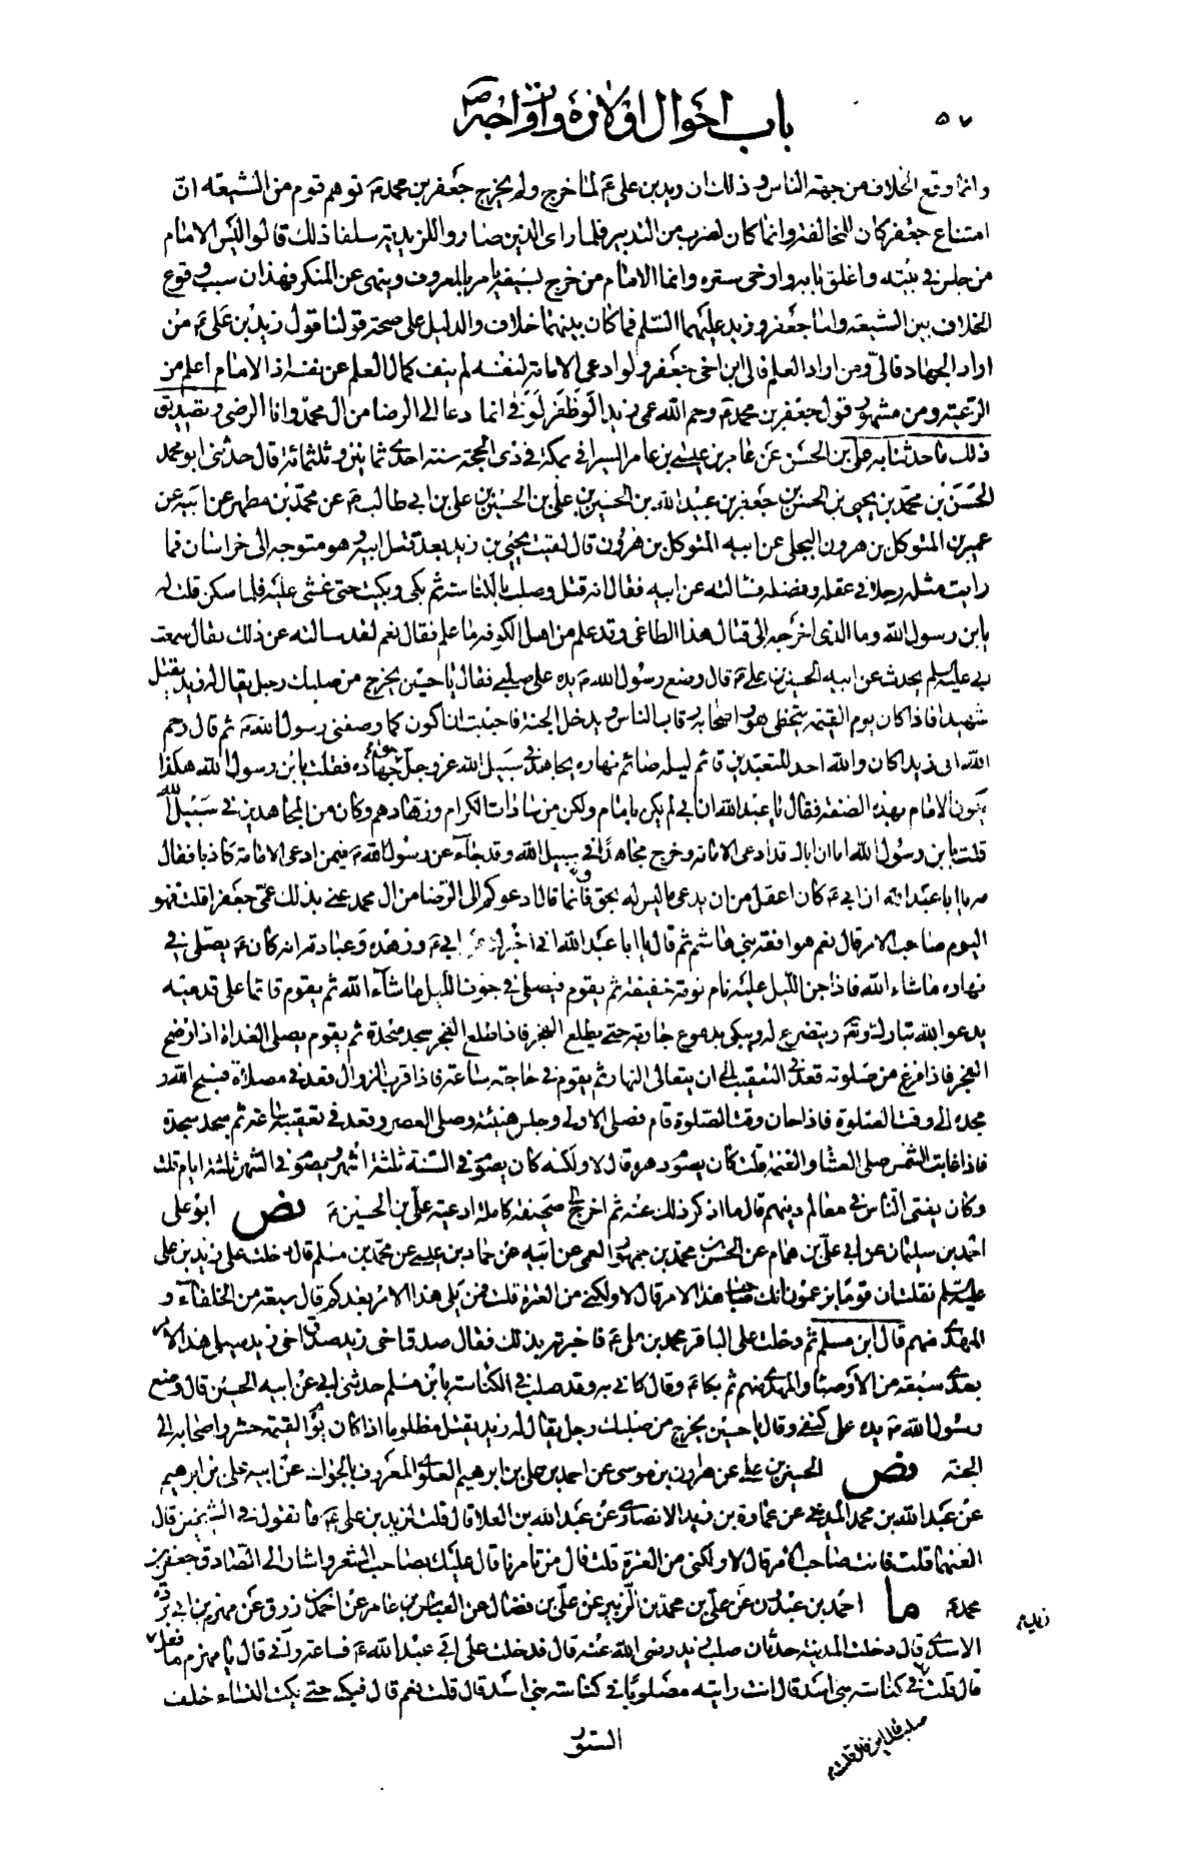 ٥٧
باب احوال اولاده وازواجه ص
وانما وقع الخلاف من جهة الناس وذلك ان زيد بن علي ع لما خرج ولم يخرج جعفر بن محمد ع توهم قوم من الشيعة ان
امتناع جعفر كان للمخالفة وانما كان لضرب من التدبير فلما راى الذين صاروا للزيدية سلفا ذلك قالوا ليس الامام
من جلس في بيته واغلق بابه وارخى ستره وانما الامام من خرج بسيفه يامر بالمعروف وينهى عن المنكر فهذا سبب وقوع
الخلاف بين الشيعة واما جعفر وزيد عليهما السلم فما كان بينهما خلاف والدليل على صحة قولنا قول زيد بن علي ع من
اراد الجهاد فالي ومن اراد العلم فالى ابن اخي جعفر ولو ادعى الامامة لنفسه لم ينف كمال العلم عن نفسه اذ الامام اعلم من
الرعية ومن مشهور قول جعفر بن محمد ع رحم الله عمي زيدا لو ظفر لوفى انما دعا الى الرضا من ال محمد وانا الرضي وتصديق
ذلك ما حدثنا به علي بن الحسن عن عامر بن عيسى بن عامر السيرافي بمكة في ذي الحجة سنة احدى ثمانين وثلثمائة قال حدثني ابو محمد
الحسن بن محمد بن يحيى بن الحسن بن جعفر بن عبيد الله بن الحسين بن علي بن الحسين بن علي بن ابي طالب ع عن محمد بن مطهر عن ابيه عن
عمير بن المتوكل بن هرون البجلي عن ابيه المتوكل بن هرون قال لقيت يحيى بن زيد بعد قتل ابيه وهو متوجه الى خراسان فما
رايت مثله رجلا في عقله وفضله فسالته عن ابيه فقال انه قتل وصلب بالكناسة ثم بكى وبكيت حتى غشي عليه فلما سكن قلت له
يا بن رسول الله وما الذي اخرجه الى قتال هذا الطاغي وقد علم من اهل الكوفة ما علم فقال نعم لقد سالته عن ذلك فقال سمعت
ابي عليه السلم يحدث عن ابيه الحسين بن علي ع قال وضع رسول الله ص يده على صلبي فقال يا حسين يخرج من صلبك رجل يقال له زيد يقتل
شهيدا فاذا كان يوم القيمة يتخطى هو واصحابه رقاب الناس ويدخل الجنة فاحببت ان اكون كما وصفني رسول الله ص ثم قال رحم
الله ابي زيدا كان والله احد المتعبدين قائم ليله صائم نهاره يجاهد في سبيل الله عز وجل حق جهاده فقلت يا بن رسول الله هكذا
يكون الامام بهذه الصفة فقال يا عبد الله ان ابي لم يكن بامام ولكن من سادات الكرام وزهادهم وكان من المجاهدين في سبيل الله
قلت يا بن رسول الله اما ان اباك قد ادعى الامامة وخرج مجاهدا في سبيل الله وقد جاء عن رسول الله ص فيمن ادعى الامامة كاذبا فقال
مه يا ابا عبد الله ان ابي ع كان اعقل من ان يدعي ما ليس له بحق وانما قال ادعوكم الى الرضا من ال محمد عنى بذلك عمي جعفرا قلت فهو
اليوم صاحب الامر قال نعم هو افقه بني هاشم ثم قال يا ابا عبد الله اني اخبرك عن ابي ع وزهده وعبادته انه كان ع يصلي في
نهاره ما شاء الله فاذا جن الليل عليه نام نومة خفيفة ثم يقوم فيصلي في جوف الليل ما شاء الله ثم يقوم قائما على قدميه
يدعو الله تبارك وتع ويتضرع له ويبكي بدموع جارية حتى يطلع الفجر فاذا طلع الفجر سجد سجدة ثم يقوم يصلي الغداة اذا وضح
الفجر فاذا فرغ من صلوته قعد في التعقيب الى ان يتعالى النهار ثم يقوم في حاجته ساعة فاذا قرب الزوال قعد في مصلاه فسبح الله و
مجده الى وقت الصلوة فاذا حان وقت الصلوة قام فصلى الاولى وجلس هنيئة وصلى العصر وقعد في تعقيبه ساعة ثم سجد سجدة
فاذا غابت الشمس صلى العشا والعتمة قلت كان يصوم دهره قال لا ولكنه كان يصوم في السنة ثلثة اشهر ويصوم في الشهر ثلثة ايام قلت
وكان يفتي الناس في معالم دينهم قال ما اذكر ذلك عنه ثم اخرج الي صحيفة كاملة ادعية علي بن الحسين ع نص ابو علي
احمد بن سليمان عن ابي علي بن همام عن الحسن بن محمد بن جمهور العمي عن ابيه عن حماد بن عيسى عن محمد بن مسلم قال دخلت على زيد بن علي
عليه السلم فقلت ان قوما يزعمون انك صاحب هذا الامر قال لا ولكني من العترة قلت فمن يلي هذا الامر بعدكم قال سبعة من الخلفاء و
المهدي منهم قال ابن مسلم ثم دخلت على الباقر محمد بن علي ع فاخبرته بذلك فقال صدق اخي زيد صدق اخي زيد سيلي هذا الامر
بعدي سبعة من الاوصيا والمهدي منهم ثم بكا ع وقال كاني به وقد صلب في الكناسة يا بن مسلم حدثني ابي عن ابيه الحسين قال وضع
رسول الله ص يده على كتفي وقال يا حسين يخرج من صلبك رجل يقال له زيد يقتل مظلوما اذا كان يوم القيمة حشر واصحابه الى
الجنة نص الحسين بن علي عن هارون بن موسى عن احمد بن علي بن ابرهيم العلوي المعروف بالجواني عن ابيه علي بن ابرهيم
عن عبد الله بن محمد المديني عن عمارة بن زيد الانصاري عن عبد الله بن العلا قال قلت لزيد بن علي ع ما تقول في الشيخين قال
العنهما قلت فانت صاحب الامر قال لا ولكني من العترة قلت فالى من تامرنا قال عليك بصاحب الشعر واشار الى الصادق جعفر بن
محمد ع ما احمد بن عبدون عن علي بن محمد بن الزبير عن علي بن فضال عن العباس بن عامر عن احمد بن رزق عن مهزم بن ابي بردة
الاسدي قال دخلت المدينة حدثان صلب زيد رضي الله عنه قال فدخلت على ابي عبد الله ع فساعة راني قال يا مهزم ما فعل
زيد
قال قلت في كناسة بني اسد قال انت رايته مصلوبا في كناسة بني اسد قال قلت نعم قال فبكى حتى بكت النساء خلف
صلب قال اين قال قلت
الستور